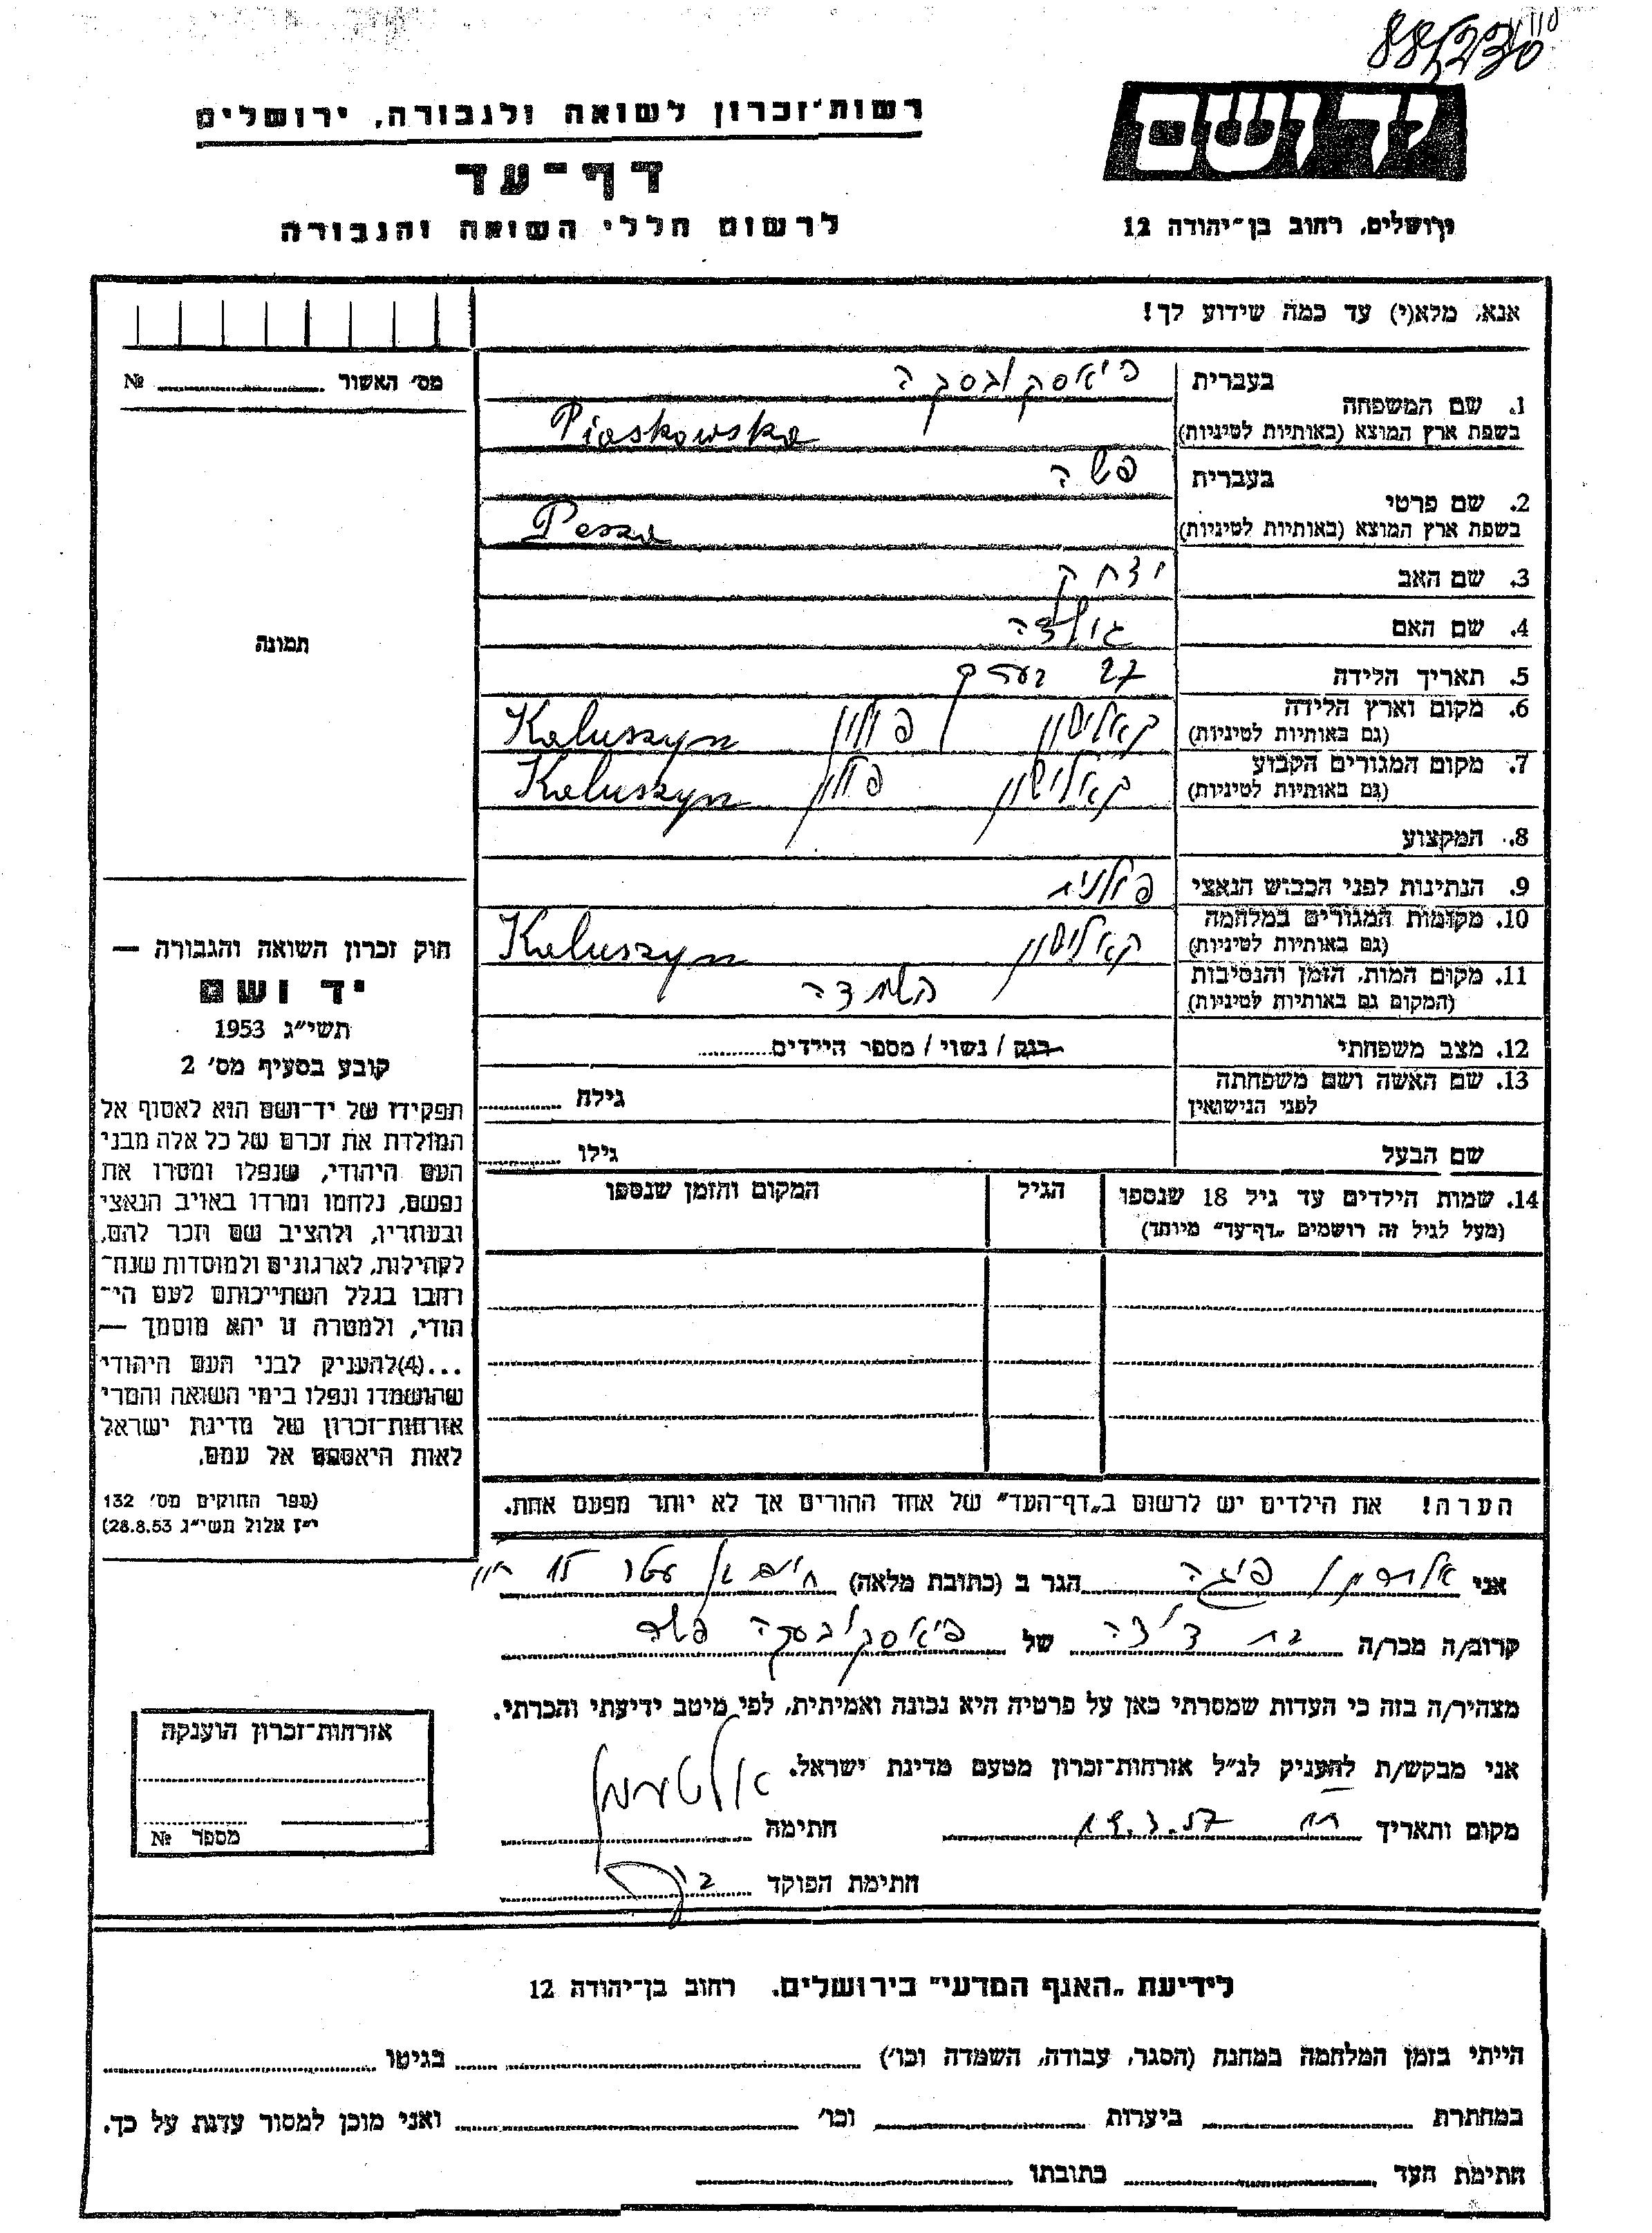 88,230
רשות־זכרון לשואה ולגבורה, ירושלים
יד ושם
דף־עד
לרשום חללי השואה והגבורה
ירושלים, רחוב בן־יהודה 12
אנא, מלא(י) עד כמה שידוע לך!
מס׳ האשור № 
1. שם המשפחה בעברית פיאסקובסקה
בשפת ארץ המוצא (באותיות לטיניות) Piaskowska
2. שם פרטי בעברית פשה
בשפת ארץ המוצא (באותיות לטיניות) Pesza
3. שם האב יצחק
4. שם האם גולדה
5. תאריך הלידה 27 בערך
6. מקום וארץ הלידה קאלושין פולין Kaluszyn
(גם באותיות לטיניות)
7. מקום המגורים הקבוע קאלושין פולין Kaluszyn
(גם באותיות לטיניות)
8. המקצוע
9. הנתינות לפני הכבוש הנאצי פולנית
10. מקומות המגורים במלחמה קאלושין Kaluszyn
(גם באותיות לטיניות)
11. מקום המות, הזמן והנסיבות השמדה
(המקום גם באותיות לטיניות)
12. מצב משפחתי רנק / נשוי / מספר הילדים
13. שם האשה ושם משפחתה גילה
לפני הנישואין
שם הבעל גילו
14. שמות הילדים עד גיל 18 שנספו הגיל המקום והזמן שנספו
(מעל לגיל זה רושמים „דף־עד״ מיוחד)
הערה! את הילדים יש לרשום ב„דף־העד״ של אחד ההורים אך לא יותר מפעם אחת.
תמונה
חוק זכרון השואה והגבורה —
יד ושם
תשי״ג 1953
קובע בסעיף מס׳ 2
תפקידו של יד־ושם הוא לאסוף אל
המולדת את זכרם של כל אלה מבני
העם היהודי, שנפלו ומסרו את
נפשם, נלחמו ומרדו באויב הנאצי
ובעוזריו, ולהציב שם וזכר להם,
לקהילות, לארגונים ולמוסדות שנח־
רבו בגלל השתייכותם לעם הי־
הודי, ולמטרה זו יהא מוסמך —
...(4)להעניק לבני העם היהודי
שהושמדו ונפלו בימי השואה והמרי
אזרחות־זכרון של מדינת ישראל
לאות היאספם אל עמם.
(ספר החוקים מס׳ 132
י״ז אלול תשי״ג 28.8.53)
אני אלטרמן פיגה הגר ב (כתובת מלאה) חיים בן עטר 15
קרוב/ה מכר/ה בת דודה של פיאסקובסקה פשה
מצהיר/ה בזה כי העדות שמסרתי כאן על פרטיה היא נכונה ואמיתית, לפי מיטב ידיעתי והכרתי.
אני מבקש/ת להעניק לנ״ל אזרחות־זכרון מטעם מדינת ישראל.
מקום ותאריך 19.3.57 חתימה אלטרמן
חתימת הפוקד
אזרחות־זכרון הוענקה
מספר №
לידיעת „האגף המדעי״ בירושלים. רחוב בן־יהודה 12
הייתי בזמן המלחמה במחנה (הסגר, עבודה, השמדה וכו׳) בגיטו
במחתרת ביערות וכו׳ ואני מוכן למסור עדות על כך.
חתימת העד כתובתו